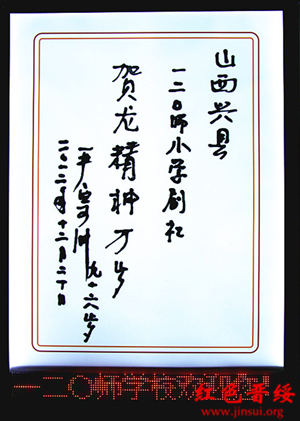 山西兴县
一二〇师小学剧社
贺龙精神万岁
严寄洲 九十六岁
二〇一二年十二月二十日
一二〇师学校欢迎您
红色晋绥
www.jinsui.org